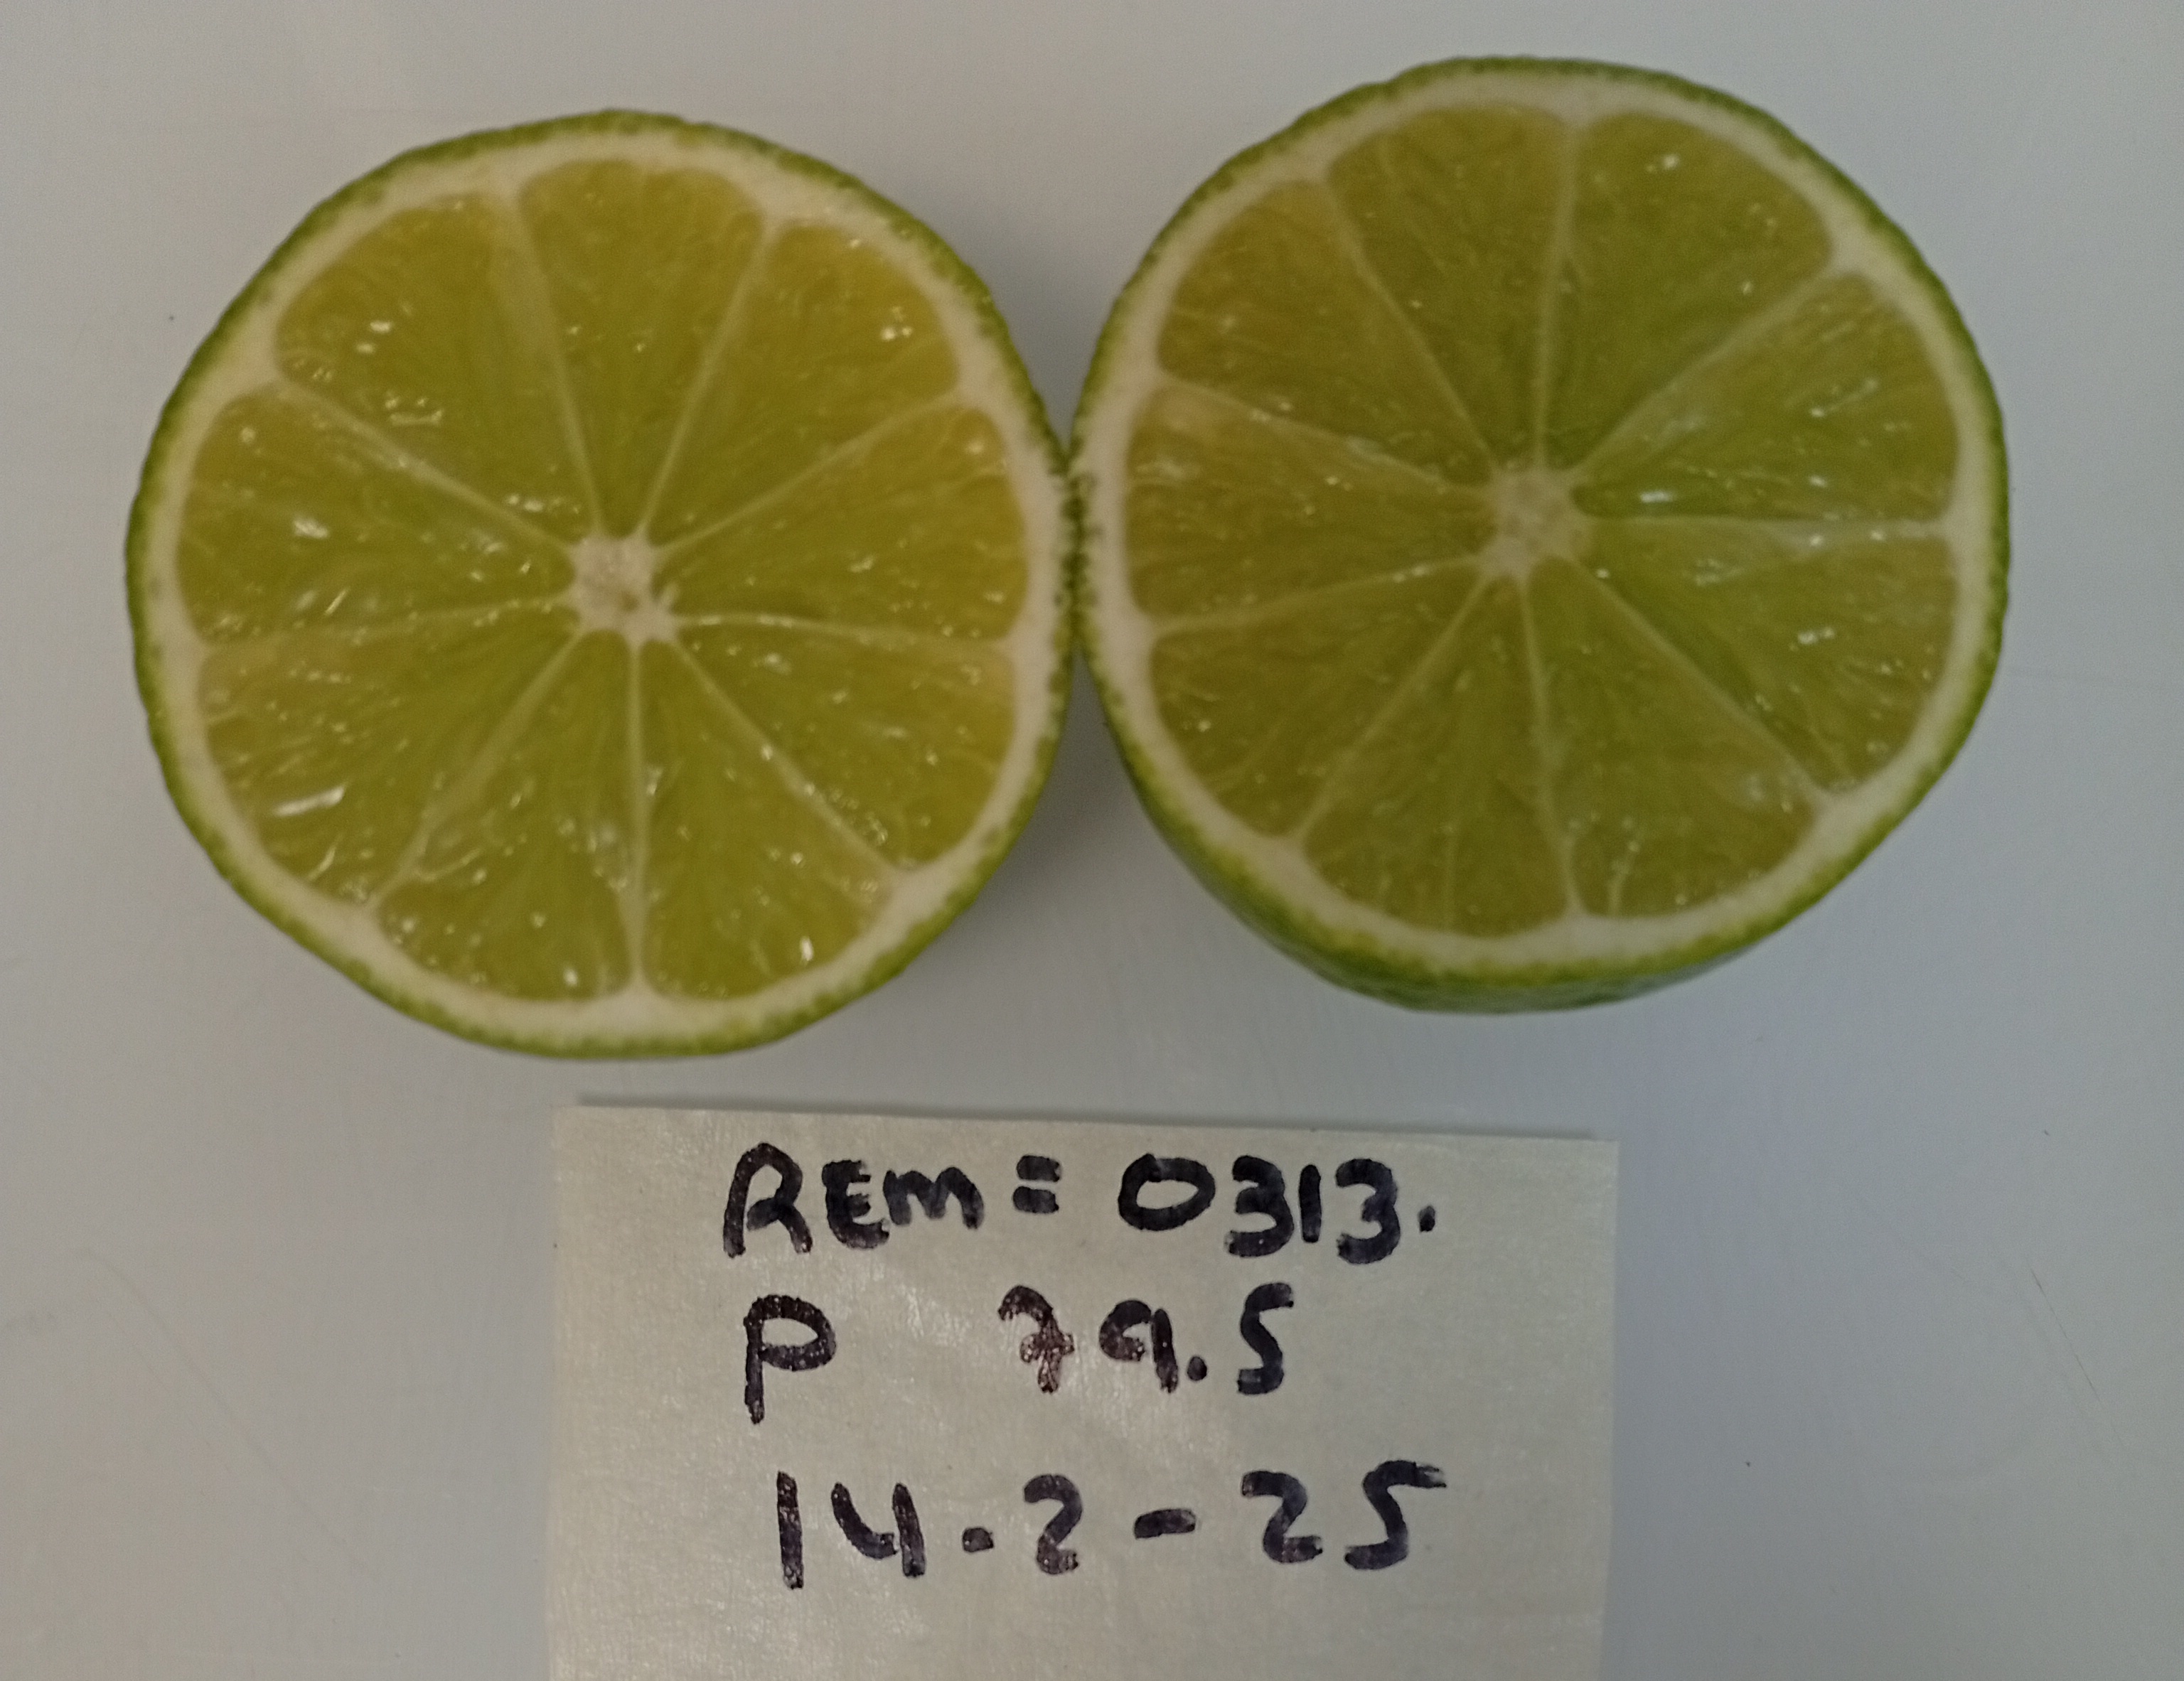 REM = 0313.
P 79.5
14.2-25